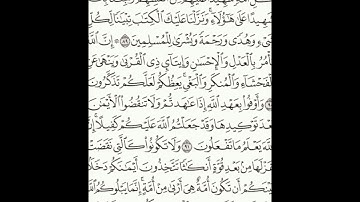 شَهِيدًا عَلَىٰ هَٰؤُلَاءِ وَنَزَّلْنَا عَلَيْكَ الْكِتَابَ تِبْيَانًا لِكُلِّ
شَيْءٍ وَهُدًى وَرَحْمَةً وَبُشْرَىٰ لِلْمُسْلِمِينَ ٨٩ إِنَّ اللَّهَ
يَأْمُرُ بِالْعَدْلِ وَالْإِحْسَانِ وَإِيتَاءِ ذِي الْقُرْبَىٰ وَيَنْهَىٰ عَنِ
الْفَحْشَاءِ وَالْمُنكَرِ وَالْبَغْيِ يَعِظُكُمْ لَعَلَّكُمْ تَذَكَّرُونَ
وَأَوْفُوا بِعَهْدِ اللَّهِ إِذَا عَاهَدتُّمْ وَلَا تَنقُضُوا الْأَيْمَانَ
بَعْدَ تَوْكِيدِهَا وَقَدْ جَعَلْتُمُ اللَّهَ عَلَيْكُمْ كَفِيلًا إِنَّ
اللَّهَ يَعْلَمُ مَا تَفْعَلُونَ ٩١ وَلَا تَكُونُوا كَالَّتِي نَقَضَتْ
غَزْلَهَا مِن بَعْدِ قُوَّةٍ أَنكَاثًا تَتَّخِذُونَ أَيْمَانَكُمْ دَخَلًا
بَيْنَكُمْ أَن تَكُونَ أُمَّةٌ هِيَ أَرْبَىٰ مِنْ أُمَّةٍ إِنَّمَا يَبْلُوكُمُ اللَّهُ